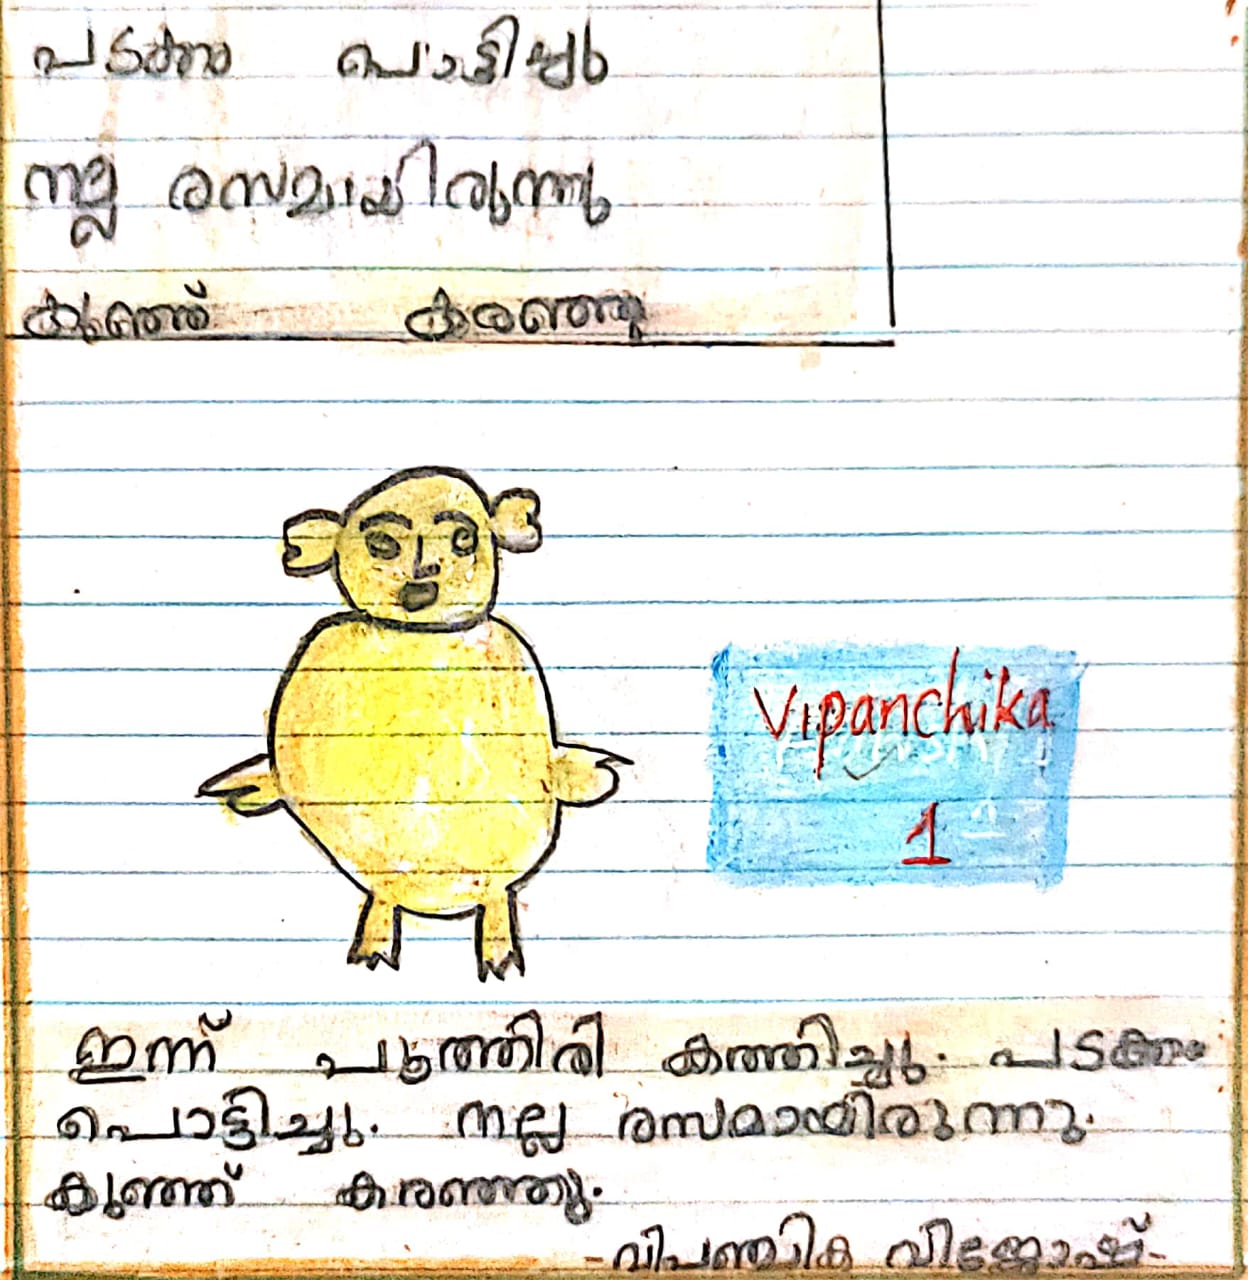 പടക്കം പൊട്ടിച്ചു
നല്ല രസമായിരുന്നു
കുഞ്ഞ് കരഞ്ഞു
Vipanchika
1
ഇന്ന് പൂത്തിരി കത്തിച്ചു. പടക്കം
പൊട്ടിച്ചു. നല്ല രസമായിരുന്നു.
കുഞ്ഞ് കരഞ്ഞു.
-വിപഞ്ചിക വിജോഷ്-